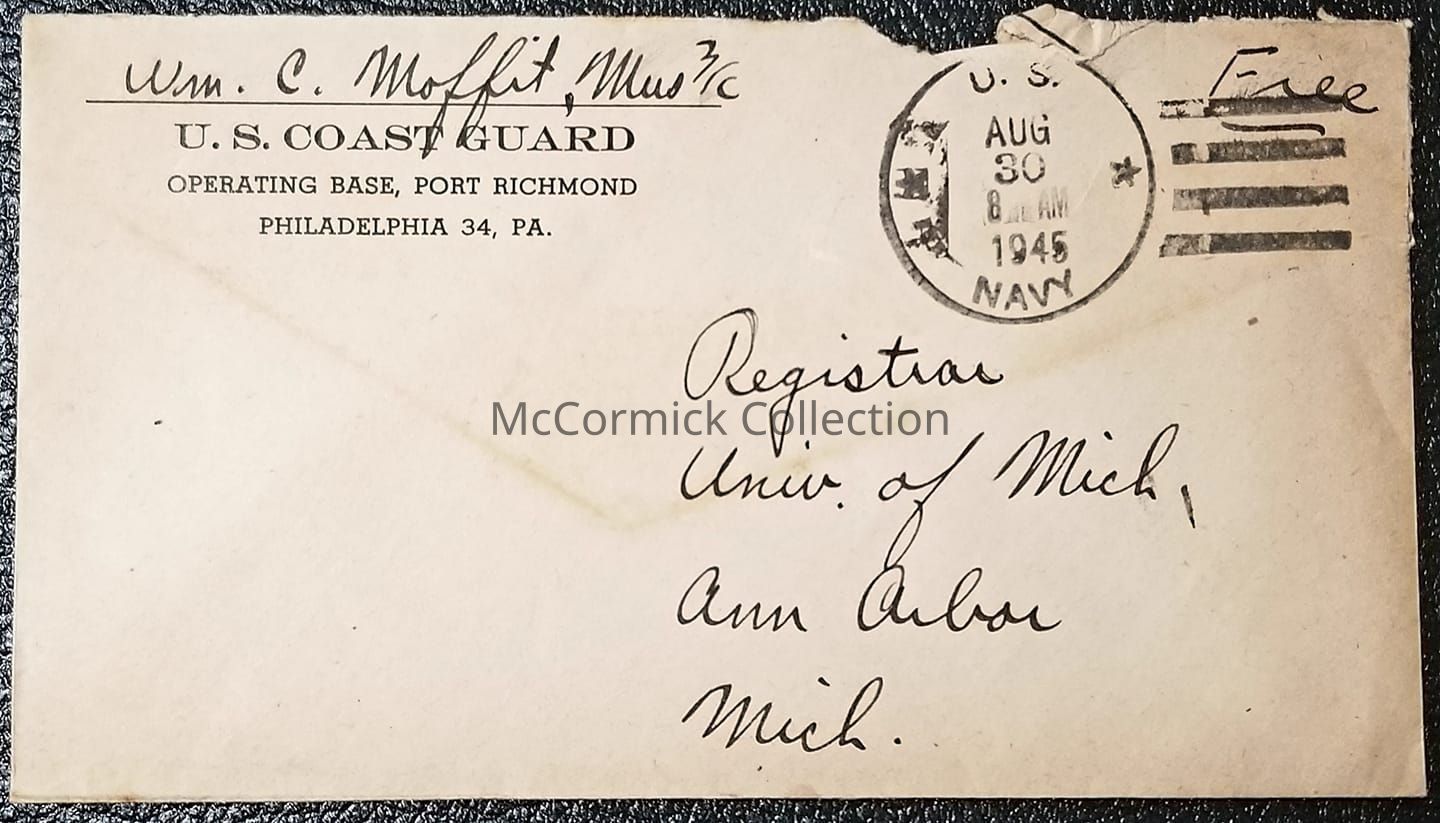 Wm. C. Moffit, Mus 3/c
U. S. COAST GUARD
OPERATING BASE, PORT RICHMOND
PHILADELPHIA 34, PA.
U. S.
AUG
30
8 AM
1945
NAVY
Free
Registrar
McCormick Collection
Univ. of Mich,
Ann Arbor
Mich.